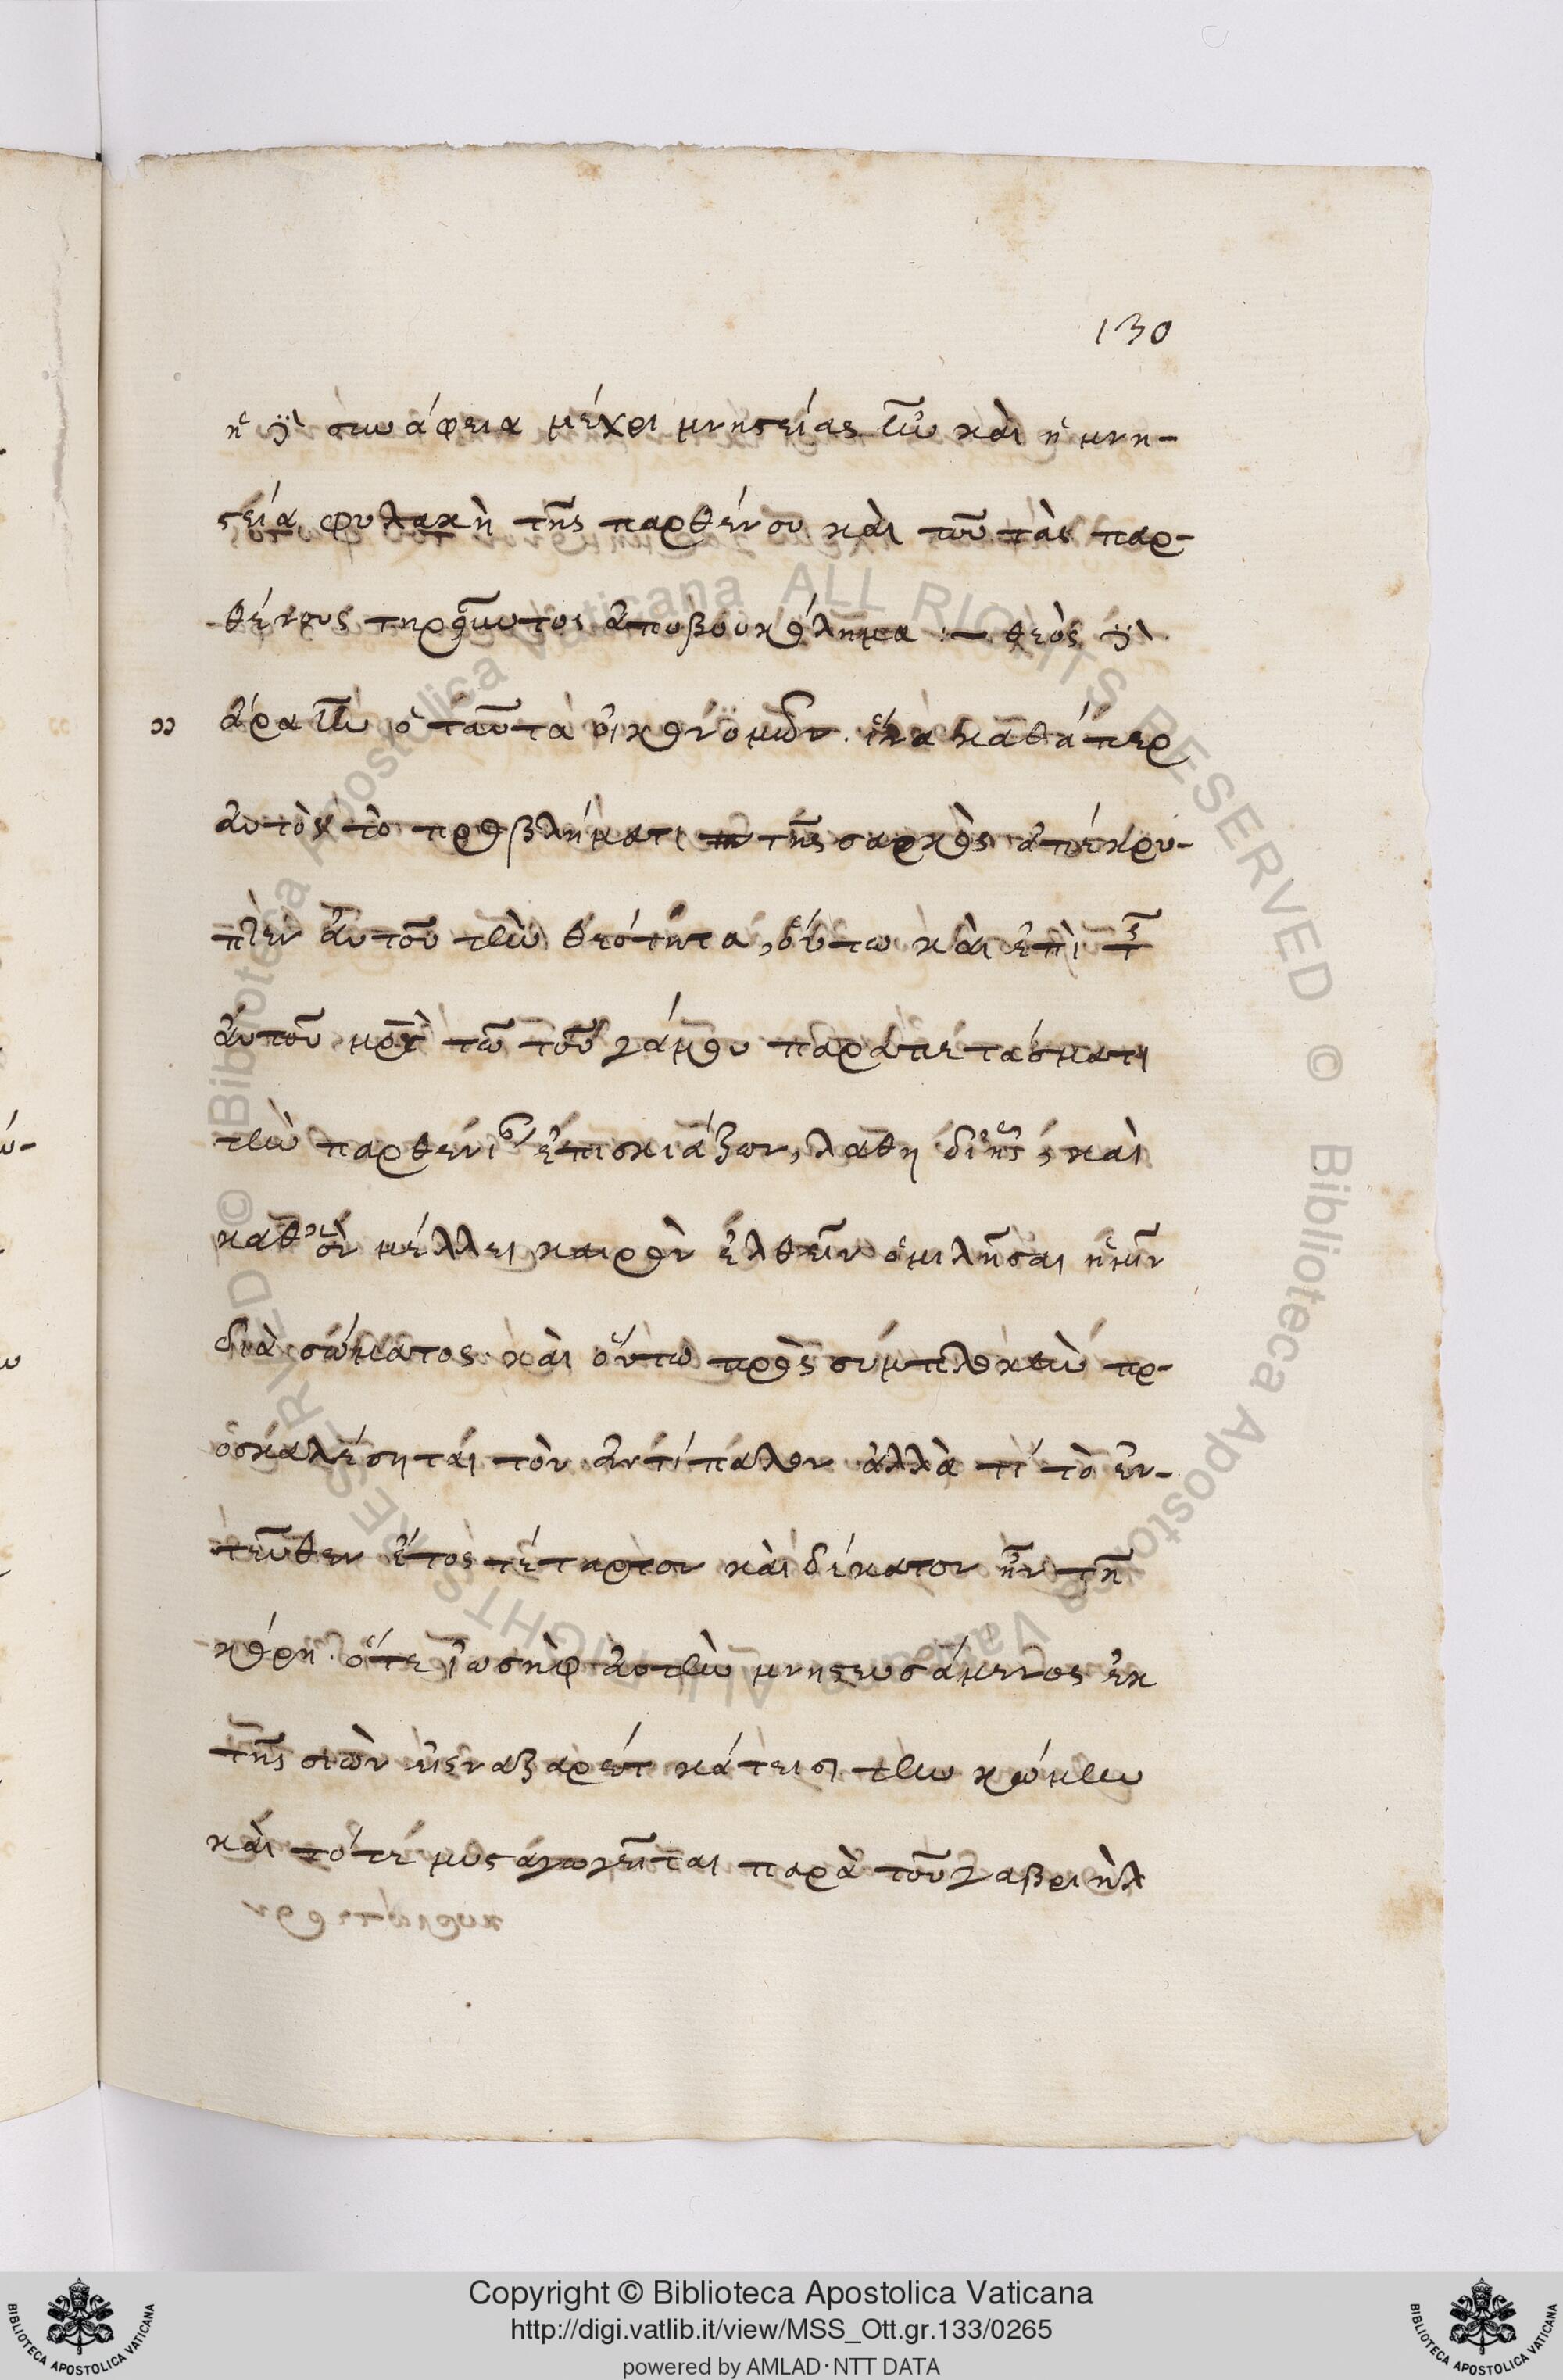 130
ἡ γὰρ συνάφεια μέχρι μνηστείας ἦν καὶ ἡ μνη-
στεία φυλακὴ τῆς παρθένου καὶ τοῦ τὰς παρ-
θένους τηροῦντος ἀποβουκόλημα :– θεὸς γὰρ
ἄρα ἦν ὁ ταῦτα οἰκονομῶν. ἵνα καθάπερ
αὐτὸς τὸ προβλήματι τῆς σαρκὸς ἀπέκρυ-
πτεν αὐτοῦ τὴν θεότητα, οὕτω καὶ ἐπὶ τῆς
αὐτοῦ μρς τῶ τοῦ γάμου παραπετάσματι
τὴν παρθενίαν ἐπισκιάζων, λάθη δι' ἧς καὶ
καθ' ὃν μέλλει καιρὸν ἐλθεῖν ὁμιλῆσαι ἡμῖν
διὰ σώματος· καὶ οὕτω πρὸς συμπλοκὴν πρ-
οσκαλέσηται τὸν ἀντίπαλον ἀλλὰ τί τὸ ἐν-
τεῦθεν ἔτος τέταρτον καὶ δέκατον ἦν τῆ
κόρη· ὅτε ἰωσὴφ αὐτὴν μνηστευσάμενος ἐκ
τῆς σιὼν εἰς ναζαρὲτ κάτεισι τὴν κώμην
καὶ τότε μυσταγωγεῖται παρὰ τοῦ γαβριὴλ
Copyright © Biblioteca Apostolica Vaticana
http://digi.vatlib.it/view/MSS_Ott.gr.133/0265
powered by AMLAD·NTT DATA